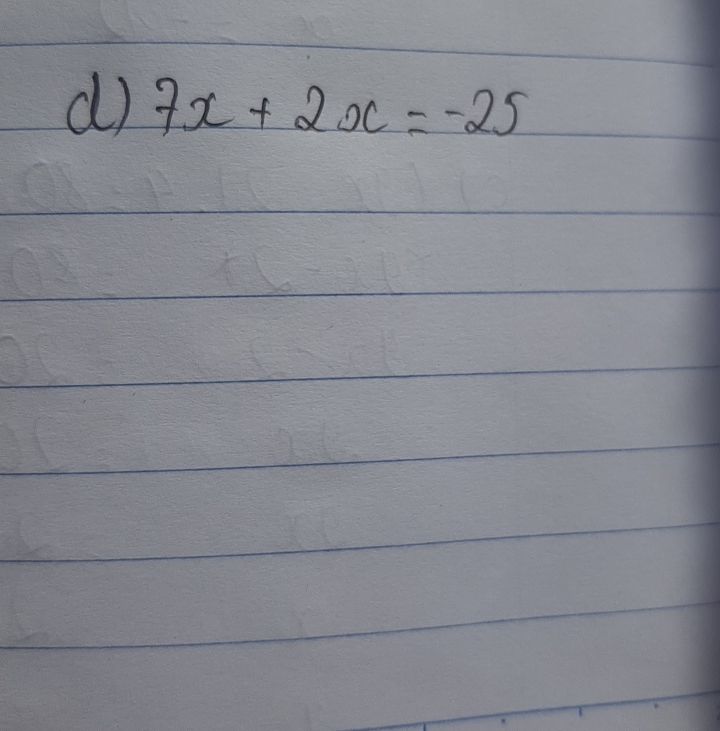 d) 7x + 2x = -25